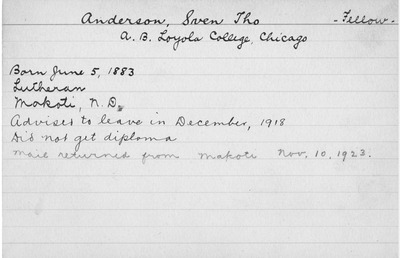 Anderson, Sven Tho - Fellow -
A. B. Loyola College, Chicago
Born June 5, 1883
Lutheran
Makoti, N. D.
Advised to leave in December, 1918
Did not get diploma
Mail returned from Makoti Nov. 10, 1923.